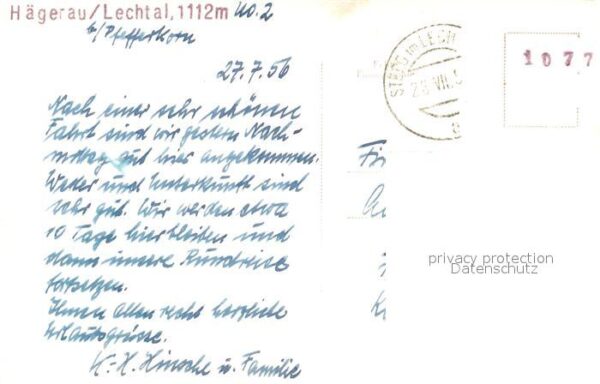 Hägerau/Lechtal, 1112m No. 2
b/Pfefferkorn
27.7.56
Nach einer sehr schönen
Fahrt sind wir gestern Nach-
mittag gut hier angekommen.
Wetter und Unterkunft sind
sehr gut. Wir werden etwa
10 Tage hierbleiben und
dann unsere Rundreise
fortsetzen.
Ihnen allen recht herzliche
Urlaubsgrüsse.
K.-H. Hinsche u. Familie
STEEG im LECH
28.VII.5
1077
privacy protection
Datenschutz